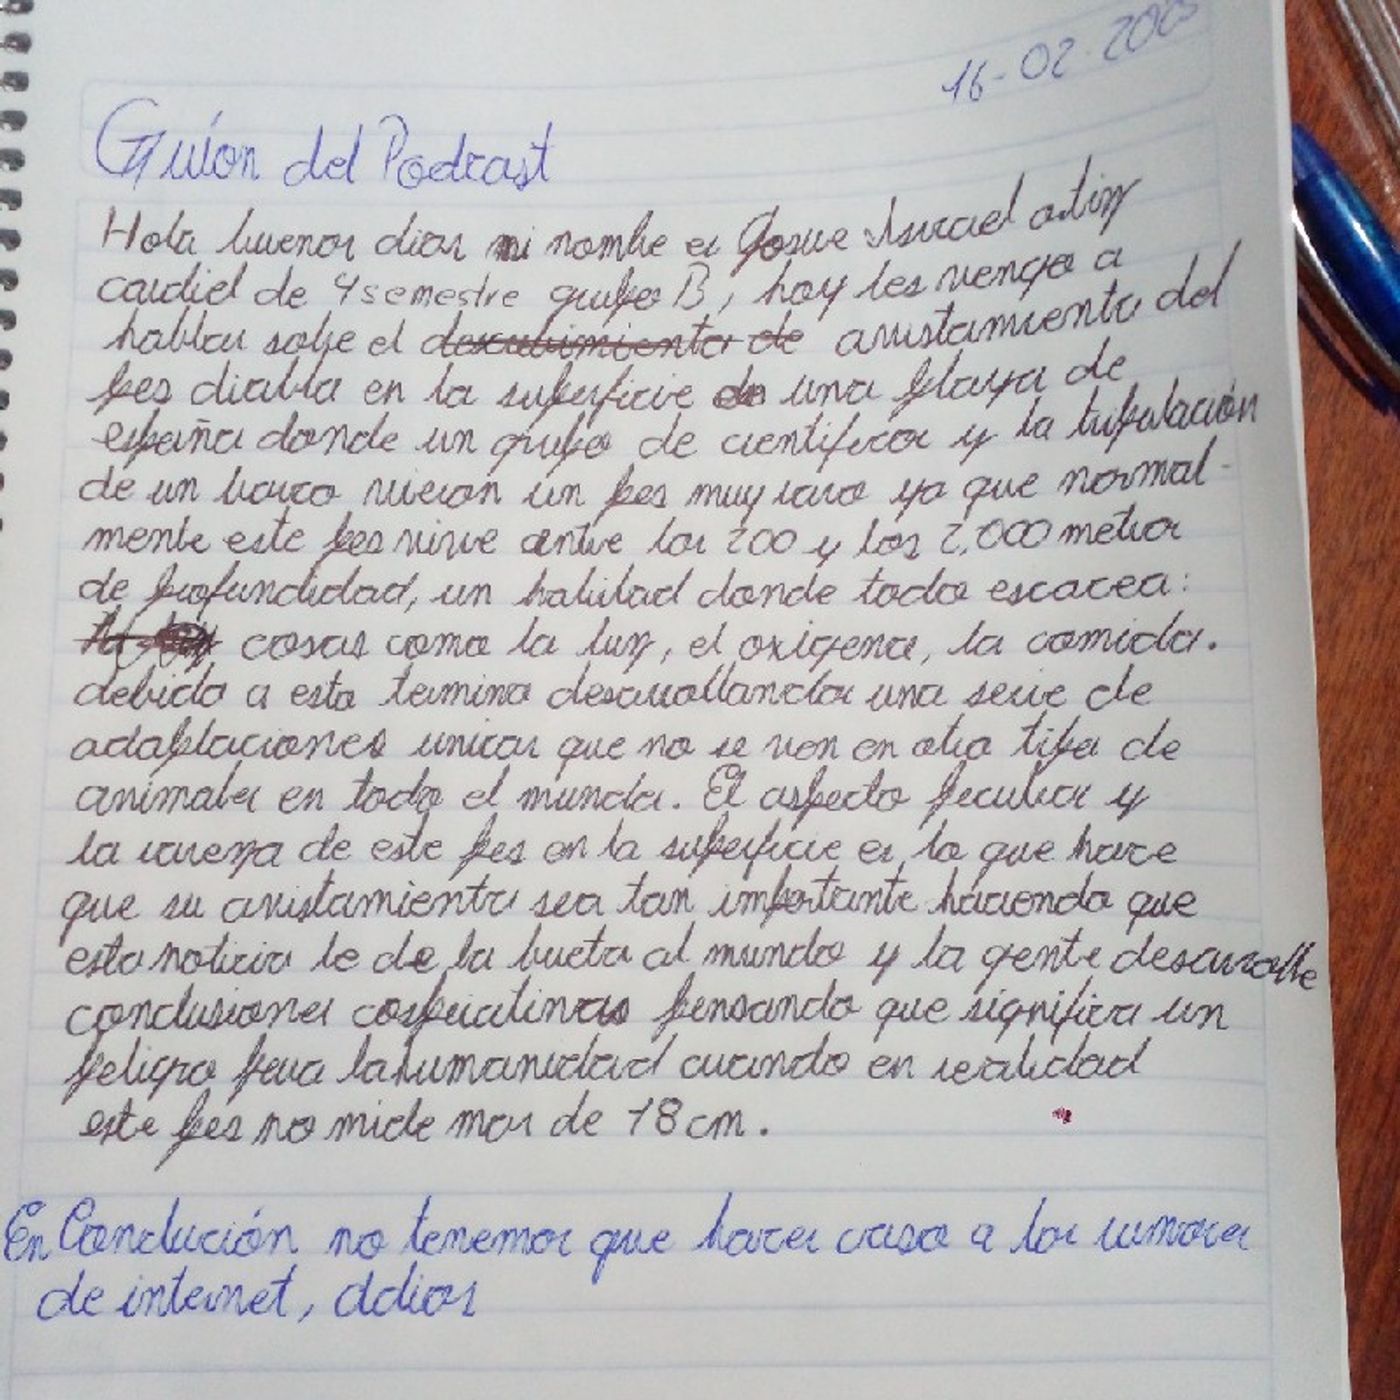 16-02-2025
Guión del Podcast
Hola buenos dias mi nombre es Josue Israel
cardiel de 4 semestre grupo B, hoy les vengo a
hablar sobre el descubrimiento de avistamiento del
pes diablo en la superficie de una playa de
españa donde un grupo de cientificos y la tripulación
de un barco vieron un pes muy raro ya que normal-
mente este pes vive entre los 200 y los 2,000 metros
de profundidad, un habitad donde todo escacea:
cosas como la luz, el oxigeno, la comida.
debido a esto termino desarrollando una serie de
adaptaciones unicas que no se ven en otro tipo de
animales en todo el mundo. El aspecto peculiar y
la rareza de este pes en la superficie es lo que hace
que su avistamiento sea tan importante haciendo que
esta noticia le de la bueta al mundo y la gente desarrolle
conclusiones pensando que significa un
peligro para la humanidad cuando en realidad
este pes no mide mas de 18 cm.
En Conclución no tenemos que hacer caso a los rumores
de internet, Adios